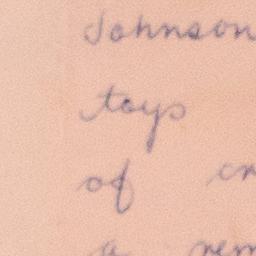 Johnson
toys
of
a